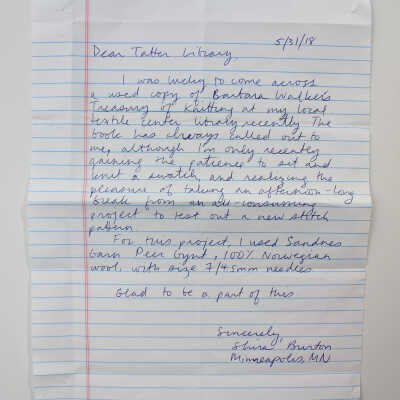 5/31/18
Dear Tatter Library,
I was lucky to come across
a used copy of Barbara Walker's
Treasury of Knitting at my local
textile center library recently. The
book has always called out to
me, although I'm only recently
gaining the patience to sit and
knit a swatch, and realizing the
pleasure of taking an afternoon-long
break from an all-consuming
project to test out a new stitch
pattern.
For this project, I used Sandnes
Garn Peer Gynt, 100% Norwegian
wool, with size 7/4.5mm needles.
Glad to be a part of this
Sincerely,
Shira Burton
Minneapolis, MN